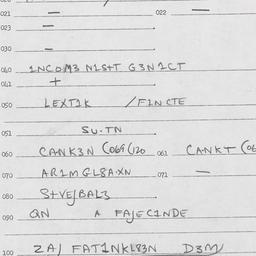 021 — 022 —
023 —
030 —
040 1NCOM3 N1S+T G3N1CT
041 +
050 LEXT1K /F1NCTE
051 SU-TN
060 CANK3N (069(120 061 CANKT (06
070 AR1MGL8A·XN 071 —
080 S+VE/BAL3
090 QN A FAJEC1NDE
100 ZA/ FAT1NKL83N D3M/